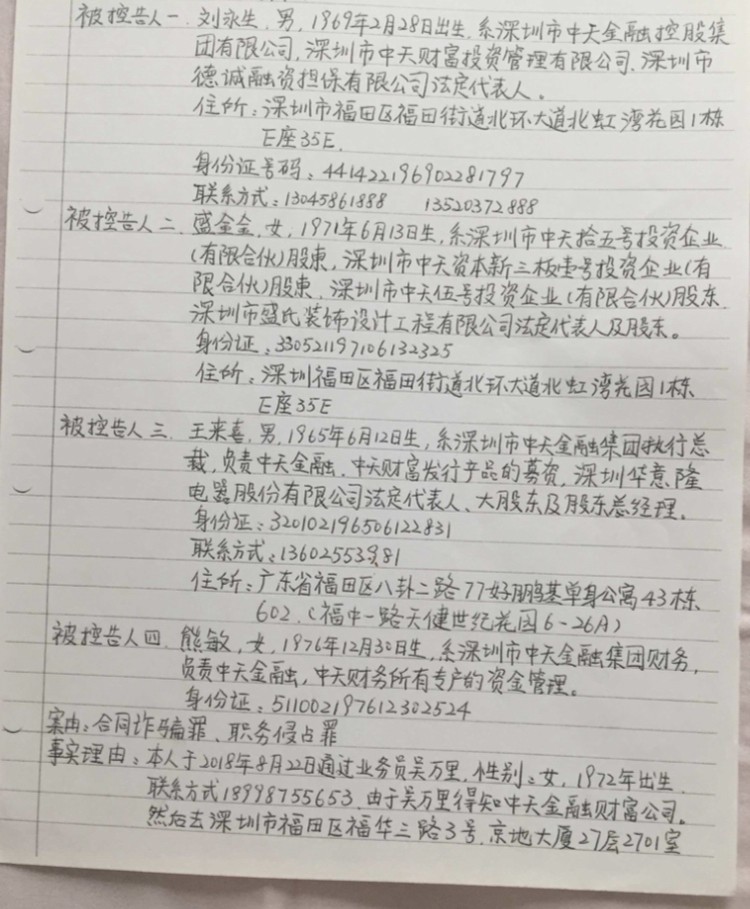 被控告人一. 刘永生, 男, 1969年2月28日出生, 系深圳市中天金融控股集
团有限公司, 深圳市中天财富投资管理有限公司. 深圳市
德诚融资担保有限公司法定代表人。
住所: 深圳市福田区福田街道北环大道北虹湾花园1栋
E座35E.
身份证号码: 441422196902281797
联系方式: 13045861888 13520372888
被控告人二. 盛金金, 女, 1971年6月13日生, 系深圳市中天拾五号投资企业
(有限合伙)股東, 深圳市中天资本新三板壹号投资企业(有
限合伙)股東. 深圳市中天伍号投资企业(有限合伙)股东.
深圳市盛氏装饰设计工程有限公司法定代表人及股东。
身份证: 330521197106132325
住所: 深圳福田区福田街道北环大道北虹湾花园1栋
E座35E
被控告人三. 王来喜, 男, 1965年6月12日生, 系深圳市中天金融集团执行总
裁, 负责中天金融. 中天财富发行产品的募资, 深圳华意隆
电器股份有限公司法定代表人、大股东及股东总经理。
身份证: 320102196506122831
联系方式: 13602553981
住所: 广东省福田区八卦二路77好鹏基单身公寓43栋
602. (福中一路天健世纪花园6-26A)
被控告人四. 熊敏, 女, 1976年12月30日生, 系深圳市中天金融集团财务,
负责中天金融, 中天财务所有专户的资金管理。
身份证: 511002197612302524
案由: 合同诈骗罪、职务侵占罪
事实理由: 本人于2018年8月22日通过业务员吴万里. 性别: 女, 1972年出生.
联系方式18998755653. 由于吴万里得知中天金融财富公司.
然后去深圳市福田区福华三路3号. 京地大厦27层2701室